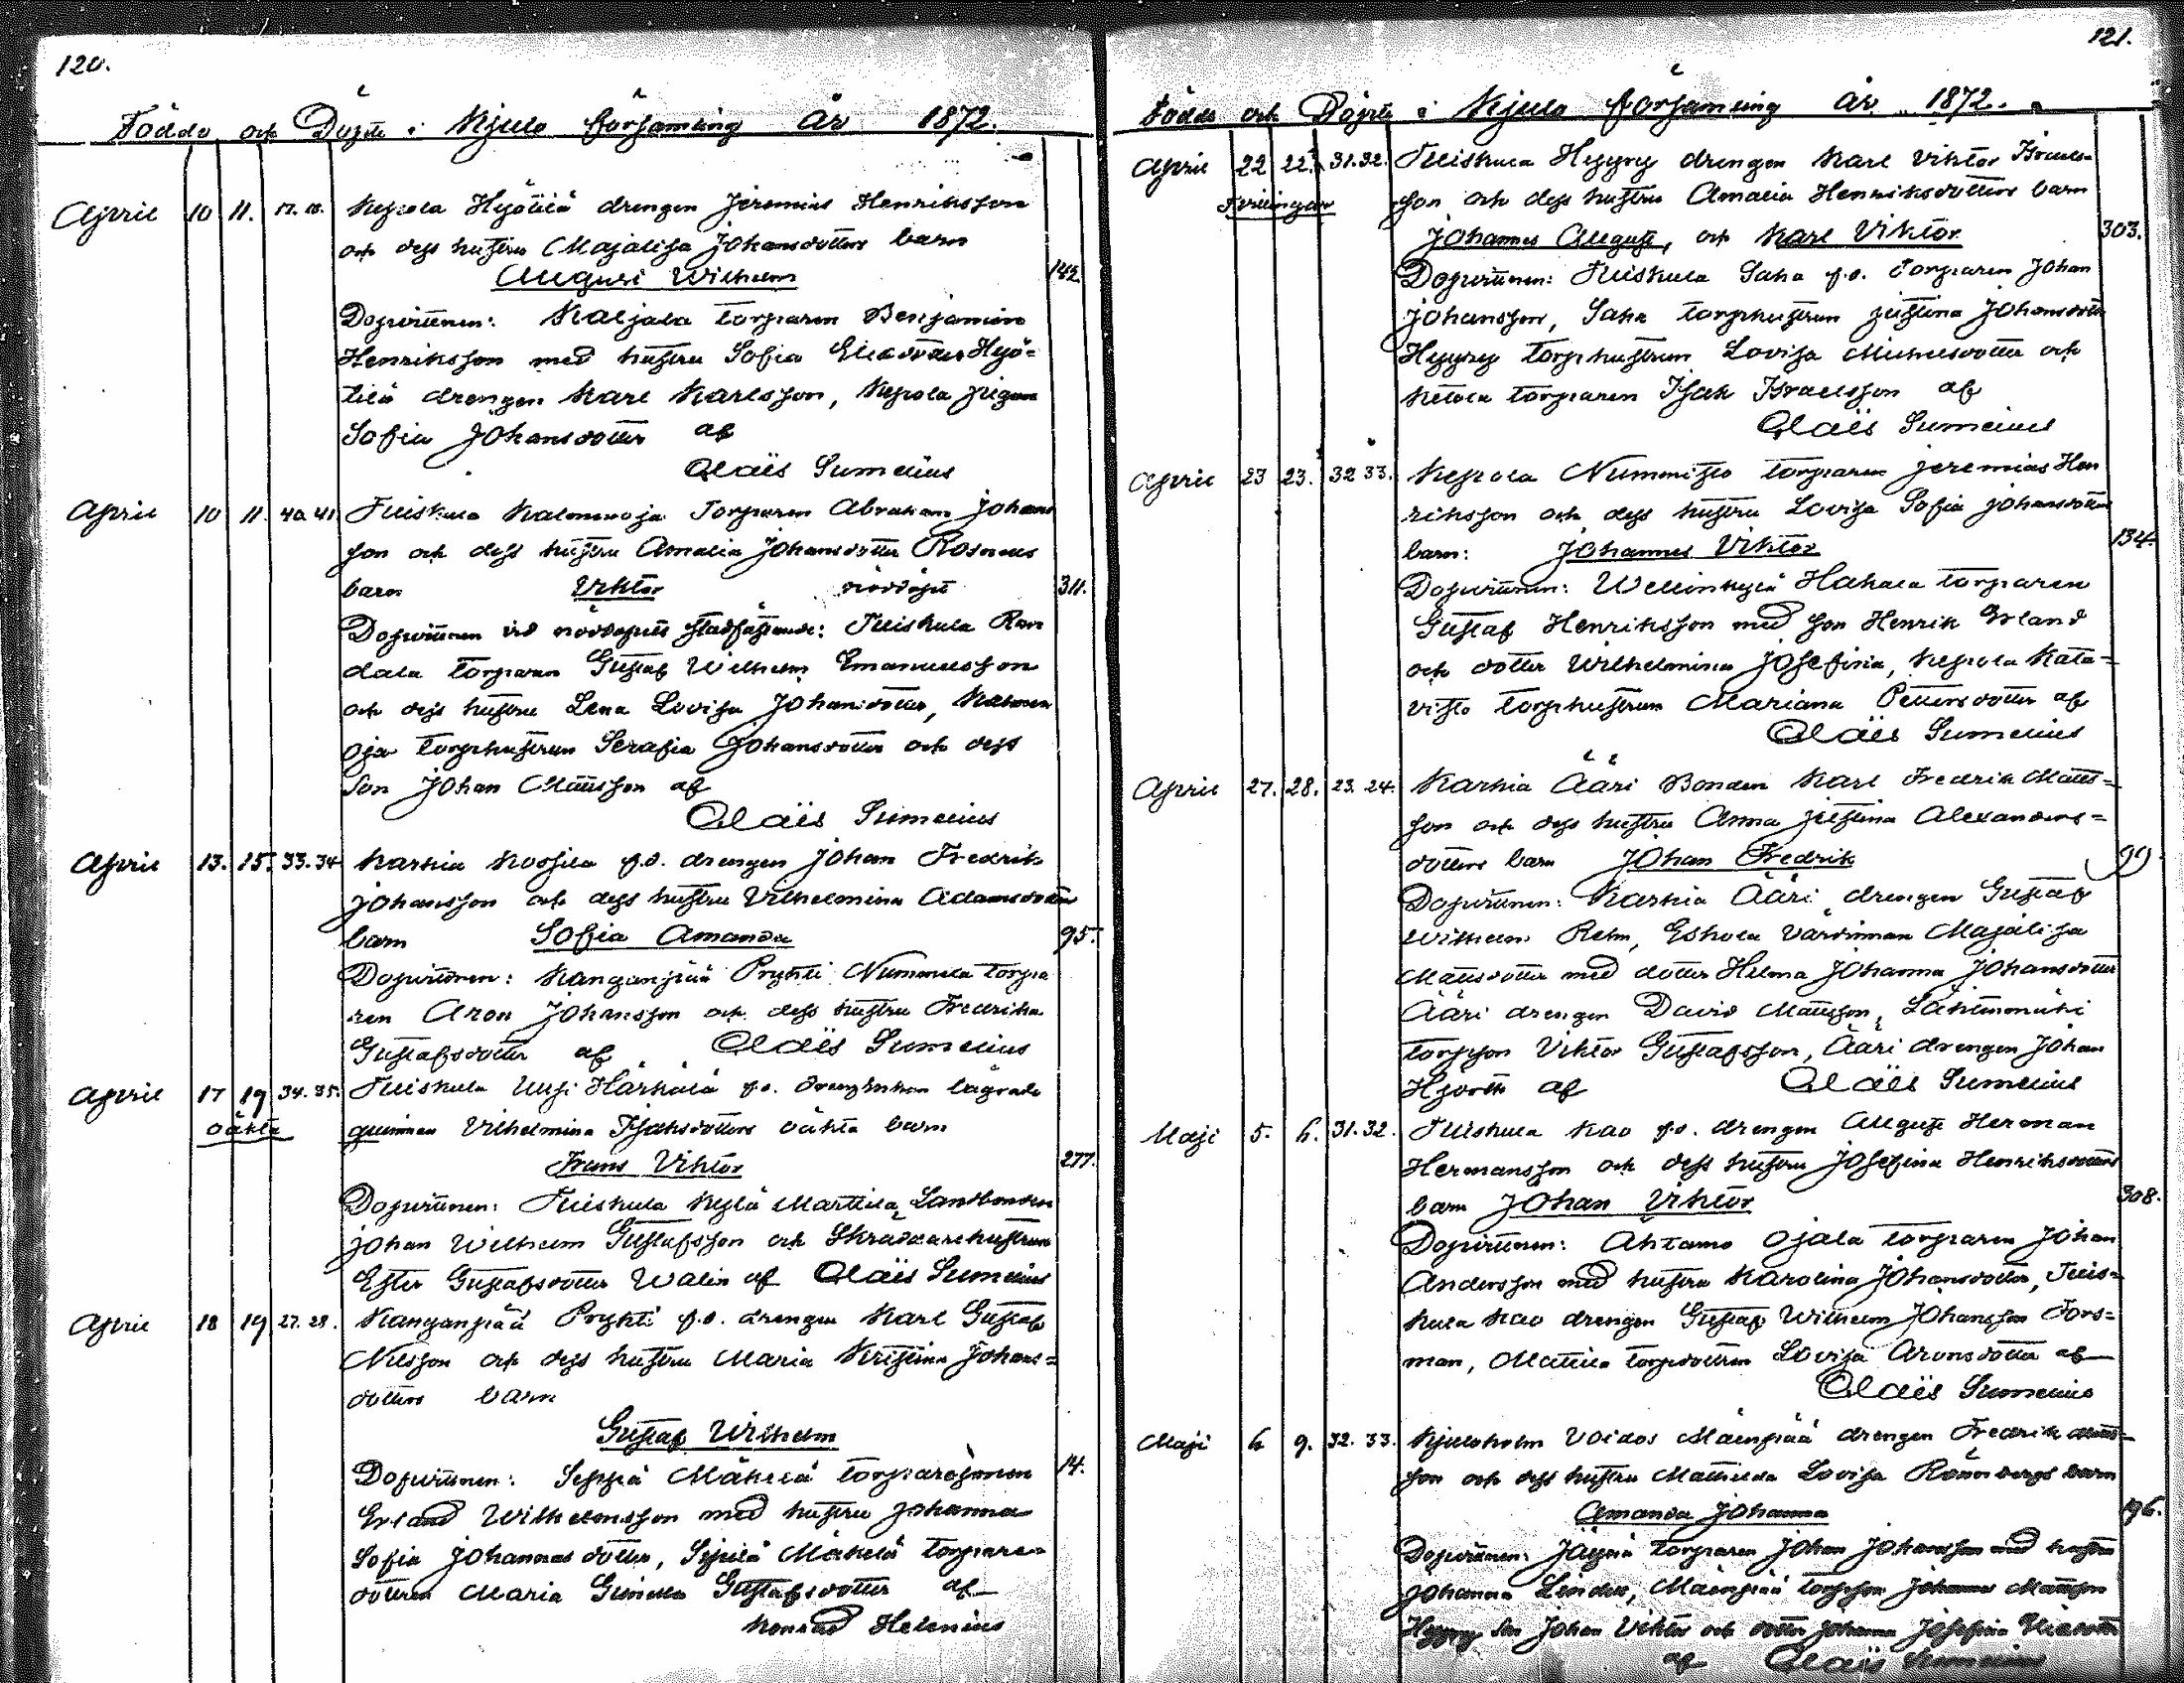 120.
Födde och Döpte i Kjulo församling År 1872.
April 10 11. 17.18. Kepola Hyötilä drengen Jeremias Henriksson
och dess hustru Majalisa Johansdotters barn
August Wilhelm 142.
Dopvittnen: Karjala torparen Benjamin
Henriksson med hustru Sofia Hyö-
tilä drengen Karl Karlsson, Kepola pigan
Sofia Johansdotter af
Claës Sumelius
April 10 11. 40.41. Tuiskula Kalmenoja Torparen Abraham Johans
son och dess hustru Amalia Johansdotter Rosneus
barn Viktor nöddöpt 311.
Dopvittnen vid nöddopets stadfästande: Tuiskula Ran
dala torparen Gustaf Wilhelm Emanuelsson
och dess hustru Lena Lovisa Johansdotter, Kalmen
oja torphustrun Serafia Johansdotter och dess
Son Johan Mattsson af
Claës Sumelius
April 13. 15. 33.34 Karhia Kossila f.d. drengen Johan Fredrik
Johansson och dess hustru Vilhelmina Adamsdotters
barn Sofia Amanda 95.
Dopvittnen: Kanganpää Prykti Nummela torpa
ren Aron Johansson och dess hustru Fredrika
Gustafsdotter af Claës Sumelius
April 17 19 34.35. Tuiskula Uusi Härkälä f.d. lägrade
oäkta qvinnan Vilhelmina Isaksdotters oäkta barn
Frans Viktor 277.
Dopvittnen: Tuiskula Kylä Marttila Landbonden
Johan Wilhelm Gustafsson och Skräddarehustrun
Ester Gustafsdotter Walin af Claës Sumelius
April 18 19 27.28. Kanganpää Prykti f.d. drengen Karl Gustaf
Nilsson och dess hustru Maria Kristina Johans=
dotters barn
Gustaf Wilhelm
Dopvittnen: Seppä Mäkelä torparesonen 14.
Erland Wilhelmsson med hustru Johanna
Sofia Johannesdotter, Mäkelä torpare-
dottren Maria Gunilla Gustafsdotter af
Konrad Helenius
121.
Födde och Döpte i Kjulo församling år 1872.
April 22 22. 31.32. Tuiskula Hyyry drengen Karl Viktor Israels-
Tvillingar son och dess hustru Amalia Henriksdotters barn
Johannes August, och Karl Viktor 303.
Dopvittnen: Tuiskula Saha f.d. torparen Johan
Johansson, Saha torphustrun Justina Johansdotter
Hyyry torphustrun Lovisa Michelsdotter och
Ketola torparen Isak Israelsson af
Claës Sumelius
April 23 23. 32 33. Kepola Nummisto torparen Jeremias Hen
riksson och dess hustru Lovisa Sofia Johansdotters
barn: Johannes Viktor 134.
Dopvittnen: Wellinkylä Hakala torparen
Gustaf Henriksson med son Henrik Erland
och dotter Wilhelmina Josefina, Kepola Kata=
visto torphustrun Mariana Pettersdotter af
Claës Sumelius
April 27. 28. 23.24. Karhia Ääri Bonden Karl Fredrik Matts=
son och dess hustru Anna Justina Alexanders=
dotters barn Johan Fredrik 99
Dopvittnen: Karhia Ääri drengen Gustaf
Wilhelm Rehn, Eskola värdinnan Majalisa
Mattsdotter med dotter Helma Johanna Johansdotter
Ääri drengen David Mattsson, Lähteenmäki
torpson Viktor Gustafsson, Ääri drengen Johan
Hjorth af Claës Sumelius
Maji 5. 6. 31.32. Tuiskula Kao f.d. drengen August Herman
Hermansson och dess hustru Josefina Henriksdotters
barn Johan Viktor 308.
Dopvittnen: Ahtamo Ojala torparen Johan
Andersson med hustru Karolina Johansdotter, Tuis=
kula Kao drengen Gustaf Wilhelm Johansson Fors=
man, Mattila torpdottren Lovisa Aronsdotter af
Claës Sumelius
Maji 6 9. 32.33. Kjuloholm Voidos Mäenpää drengen Fredrik Matts=
son och dess hustru Mathilda Lovisa Rönnbergs barn
Amanda Johanna 196.
Dopvittnen: torparen Johan Johansson med hustru
Johanna Mäenpää torpson Johannes Mattsson
Hyyry Son Johan Viktor och dotter Johanna Josefina
af Claës Sumelius